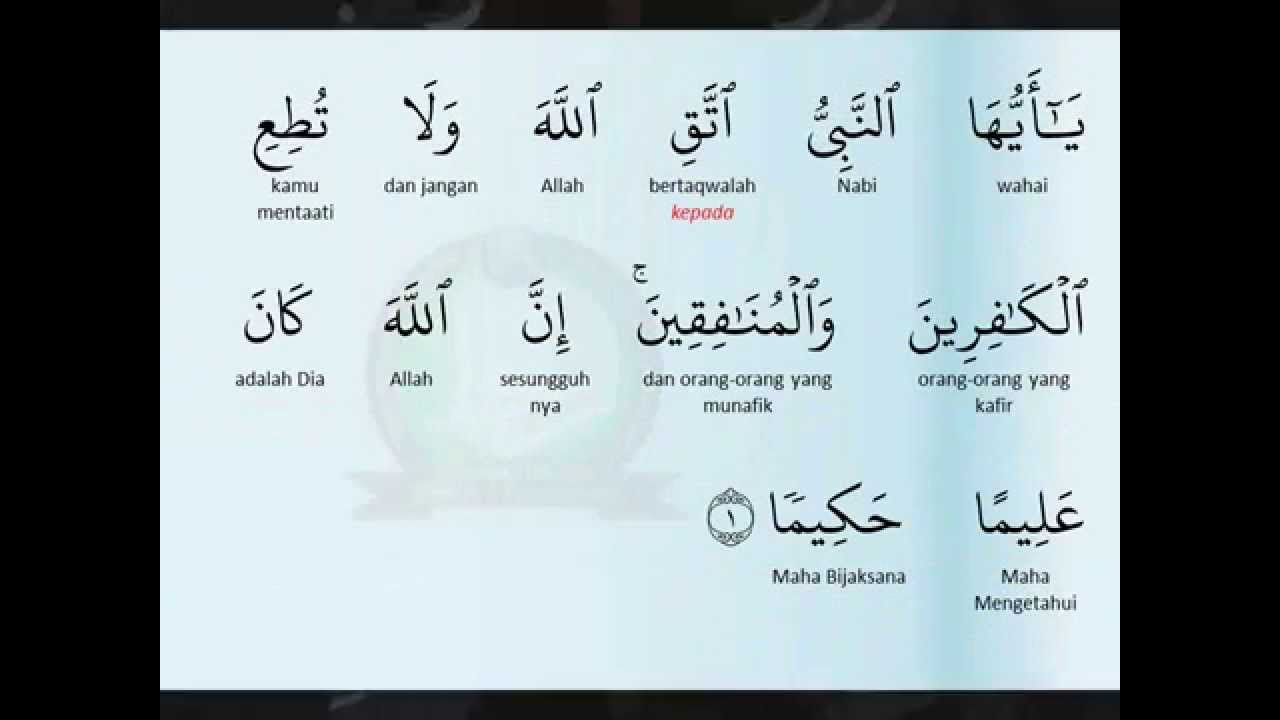 يَـٰٓأَيُّهَا ٱلنَّبِىُّ ٱتَّقِ ٱللَّهَ وَلَا تُطِعِ
wahai Nabi bertaqwalah Allah dan jangan kamu
kepada mentaati
ٱلْكَـٰفِرِينَ وَٱلْمُنَـٰفِقِينَ ۚ إِنَّ ٱللَّهَ كَانَ
orang-orang yang dan orang-orang yang sesungguh Allah adalah Dia
kafir munafik nya
عَلِيمًا حَكِيمًا ١
Maha Maha Bijaksana
Mengetahui